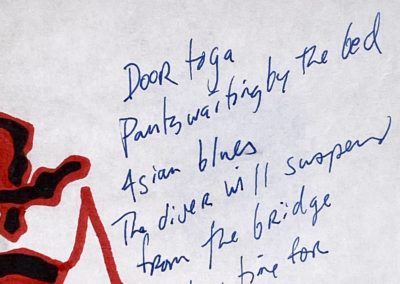 Door toga
Pants waiting by the bed
Asian blues
The diver will suspend
from the bridge
time for